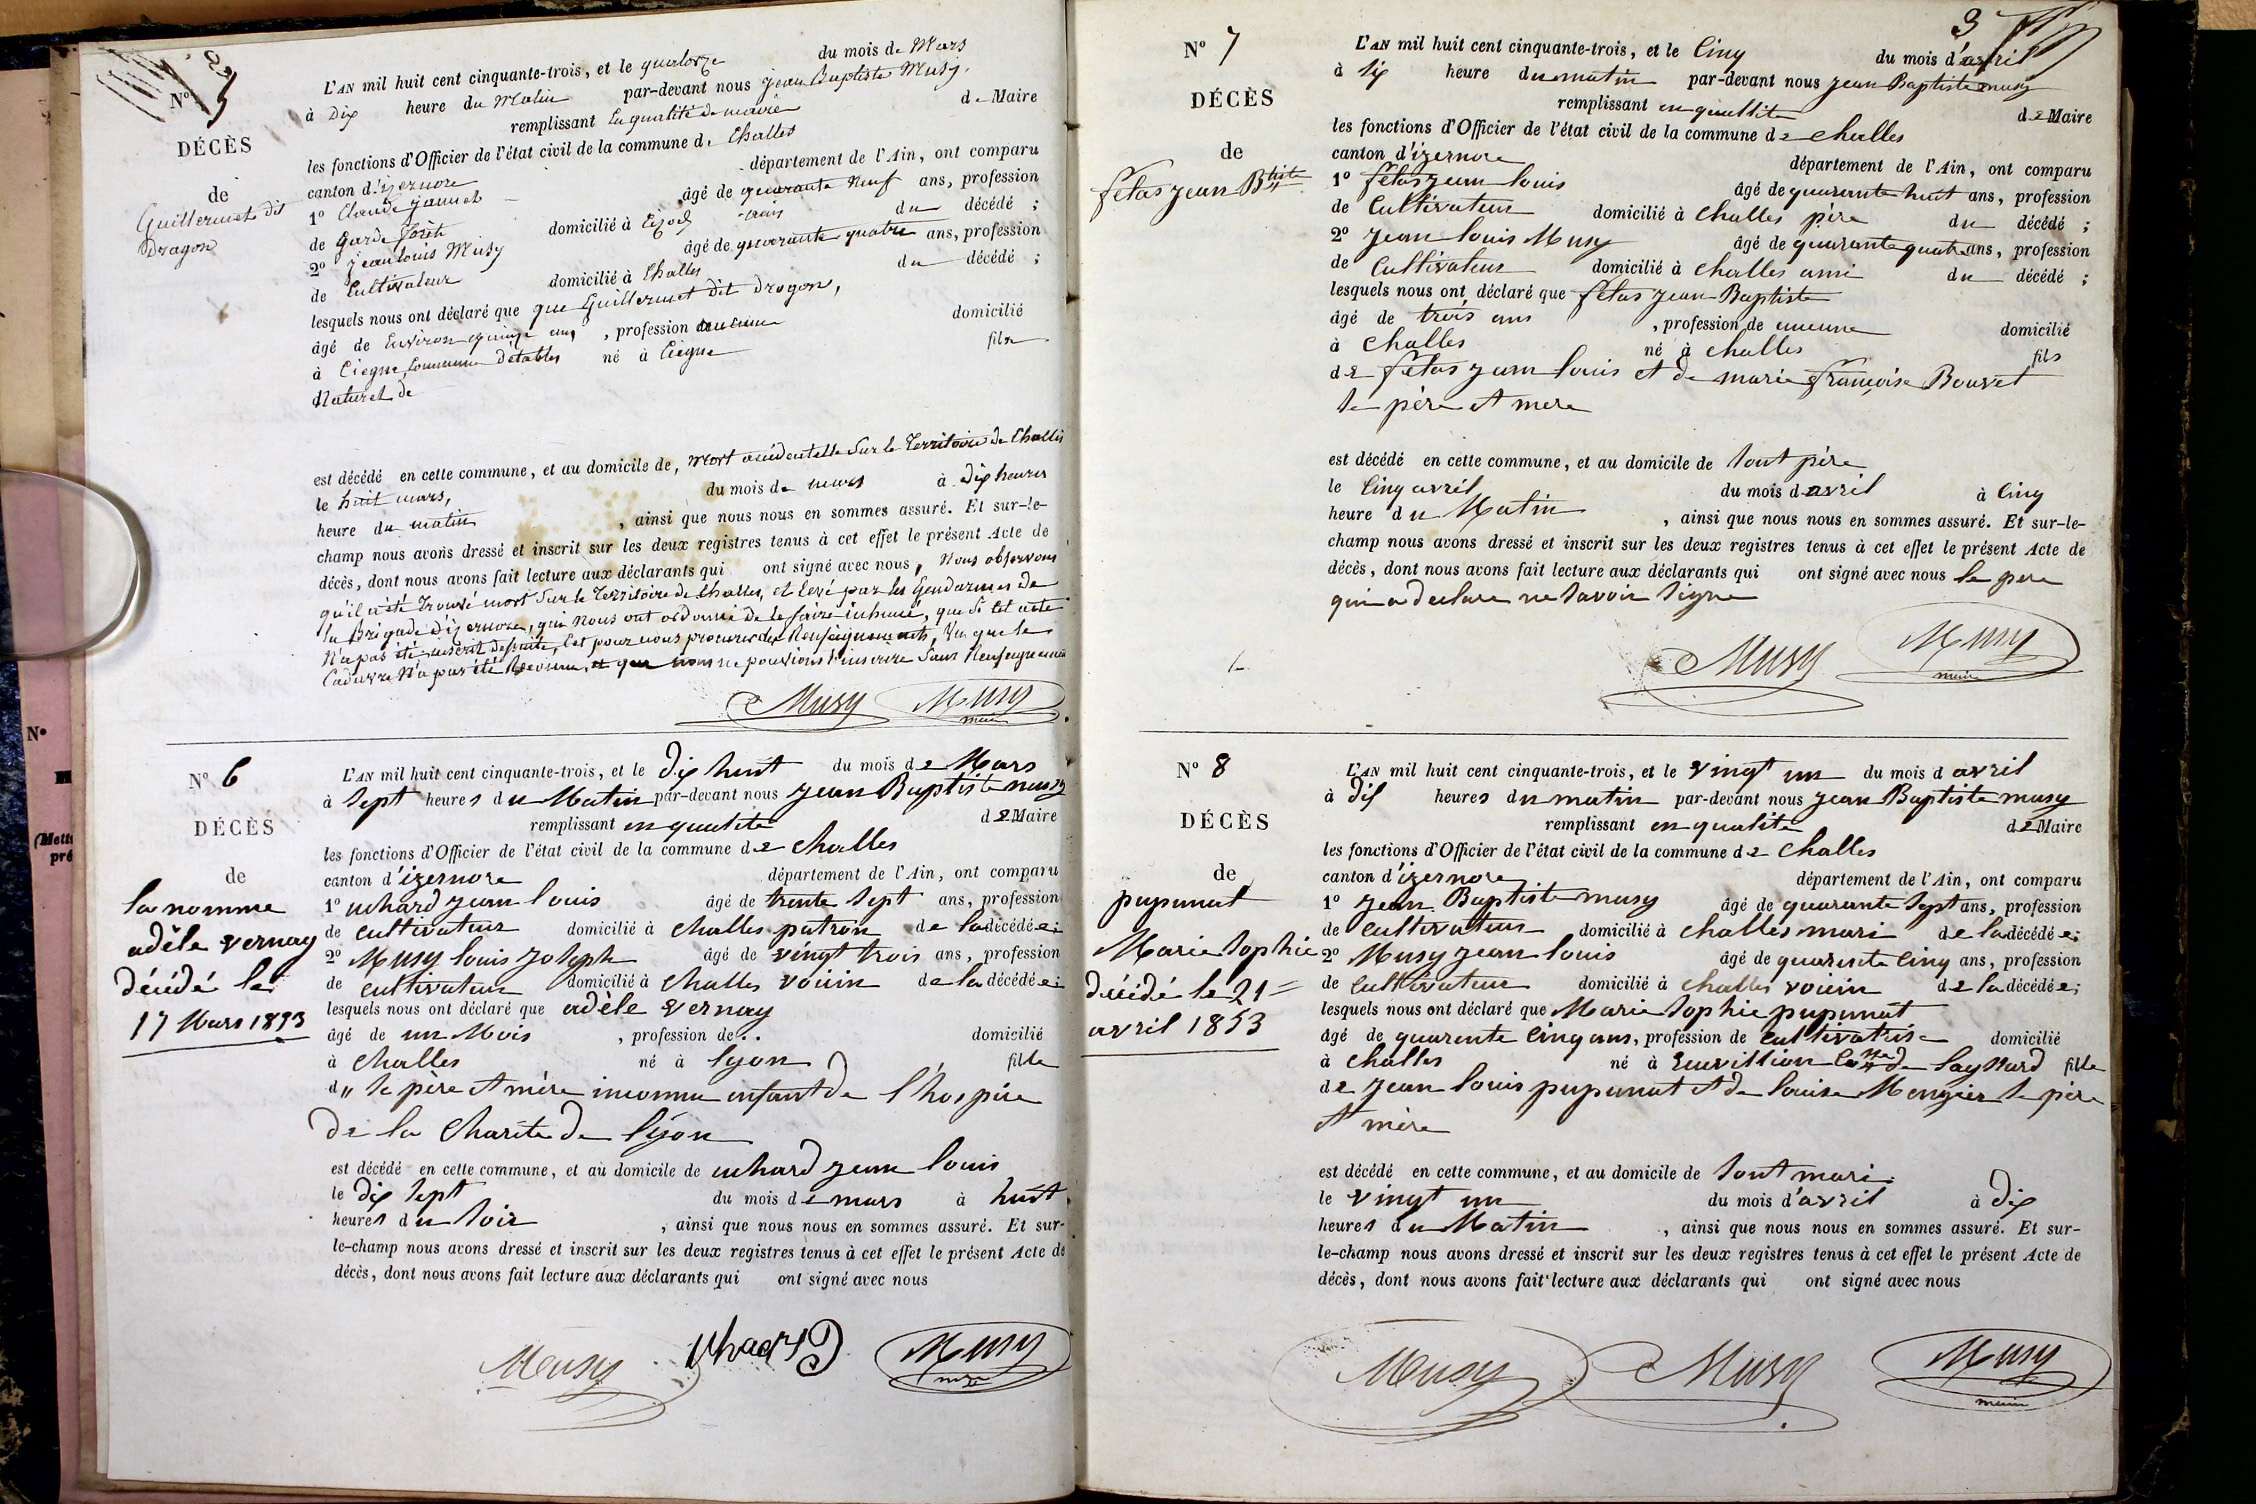 2
N° 5
DÉCÈS
de
Guillermet dit
Dragon
L'AN mil huit cent cinquante-trois, et le quatorze du mois de Mars
à Dix heure du Matin par-devant nous Jean Baptiste Musy.
remplissant En qualité de maire de Maire
les fonctions d'Officier de l'état civil de la commune de Challes
canton d'izernore département de l'Ain, ont comparu
1° Claude jannet âgé de quarante Neuf ans, profession
de Garde forêt domicilié à du décédé ;
2° Jean louis Musy âgé de quarante quatre ans, profession
de Cultivateur domicilié à Challes du décédé ;
lesquels nous ont déclaré que que Guillermet dit Dragon,
âgé de Environ quinze ans, profession aucune domicilié
à Ciegne Commune d'étables né à Ciegne fils
Naturel de
est décédé en cette commune, et au domicile de, Mort accidentelle Sur le Territoire de Challes
le huit mars, du mois de mars à dix heures
heure du matin , ainsi que nous nous en sommes assuré. Et sur-le-
champ nous avons dressé et inscrit sur les deux registres tenus à cet effet le présent Acte de
décès, dont nous avons fait lecture aux déclarants qui ont signé avec nous, Nous observons
qu'il a été Trouvé mort Sur le Territoire de Challes, et levé par les Gendarmes de
la Brigade d'izernore, qui Nous ont ordonné de le faire inhumé, que si cet acte
N'a pas été inscrit desuite, c'est pour nous procurer des Renseignements, Vu que le
Cadavre N'a pas été Reconnu, et que nous ne pouvions l'inscrire Sans Renseignement
Musy Musy
maire
N° 6
DÉCÈS
de
la nomme
adèle vernay
décédé le
17 Mars 1853
L'AN mil huit cent cinquante-trois, et le dix huit du mois de Mars
à sept heures du Matin par-devant nous jean Baptiste musy
remplissant en qualité de Maire
les fonctions d'Officier de l'état civil de la commune de challes
canton d'izernore département de l'Ain, ont comparu
1° uchard jean louis âgé de trente sept ans, profession
de cultivateur domicilié à challes patron de la décédée;
2° Musy louis joseph âgé de vingt trois ans, profession
de cultivateur domicilié à challes voisin de la décédée;
lesquels nous ont déclaré que adèle vernay
âgé de un Mois , profession de .. domicilié
à challes né à lyon fille
d" se père et mère inconnu enfant de l'hospice
de la charité de lyon
est décédé en cette commune, et au domicile de uchard jean louis
le dix sept du mois de mars à huit
heures du soir , ainsi que nous nous en sommes assuré. Et sur-
le-champ nous avons dressé et inscrit sur les deux registres tenus à cet effet le présent Acte de
décès, dont nous avons fait lecture aux déclarants qui ont signé avec nous
Musy Uhard Musy
3
N° 7
DÉCÈS
de
fétas jean Btiste
L'AN mil huit cent cinquante-trois, et le Cinq du mois d'avril
à Six heure du matin par-devant nous jean Baptiste musy
remplissant en quallité de Maire
les fonctions d'Officier de l'état civil de la commune de challes
canton d'izernore département de l'Ain, ont comparu
1° fétas jean louis âgé de quarante huit ans, profession
de Cultivateur domicilié à challes père du décédé ;
2° jean louis Musy âgé de quarante quatre ans, profession
de Cultivateur domicilié à challes ami du décédé ;
lesquels nous ont déclaré que fétas jean Baptiste
âgé de trois ans , profession de aucune domicilié
à challes né à challes fils
de fétas jean louis et de marie françoise Bouvet
se père et mère
est décédé en cette commune, et au domicile de sont père
le Cinq avril du mois d avril à Cinq
heure du Matin , ainsi que nous nous en sommes assuré. Et sur-le-
champ nous avons dressé et inscrit sur les deux registres tenus à cet effet le présent Acte de
décès, dont nous avons fait lecture aux déclarants qui ont signé avec nous le père
qui a declare ne savoir signe
Musy Musy
maire
N° 8
DÉCÈS
de
pupunat
Marie sophie
décédé le 21
avril 1853
L'AN mil huit cent cinquante-trois, et le vingt un du mois d avril
à Dix heures du matin par-devant nous jean Baptiste musy
remplissant en qualité de Maire
les fonctions d'Officier de l'état civil de la commune de challes
canton d'izernore département de l'Ain, ont comparu
1° jean Baptiste musy âgé de quarante sept ans, profession
de cultivateur domicilié à challes mari de la décédée;
2° Musy jean louis âgé de quarente Cinq ans, profession
de Cultivateur domicilié à challes voisin de la décédée;
lesquels nous ont déclaré que Marie sophie pupunat
âgé de quarente Cinq ans, profession de Cultivatrise domicilié
à challes né à fille
de jean louis pupunat et de louise Mengier se père
et mère
est décédé en cette commune, et au domicile de sont mari
le vingt un du mois d'avril à dix
heures du Matin , ainsi que nous nous en sommes assuré. Et sur-
le-champ nous avons dressé et inscrit sur les deux registres tenus à cet effet le présent Acte de
décès, dont nous avons fait lecture aux déclarants qui ont signé avec nous
Musy Musy Musy
maire